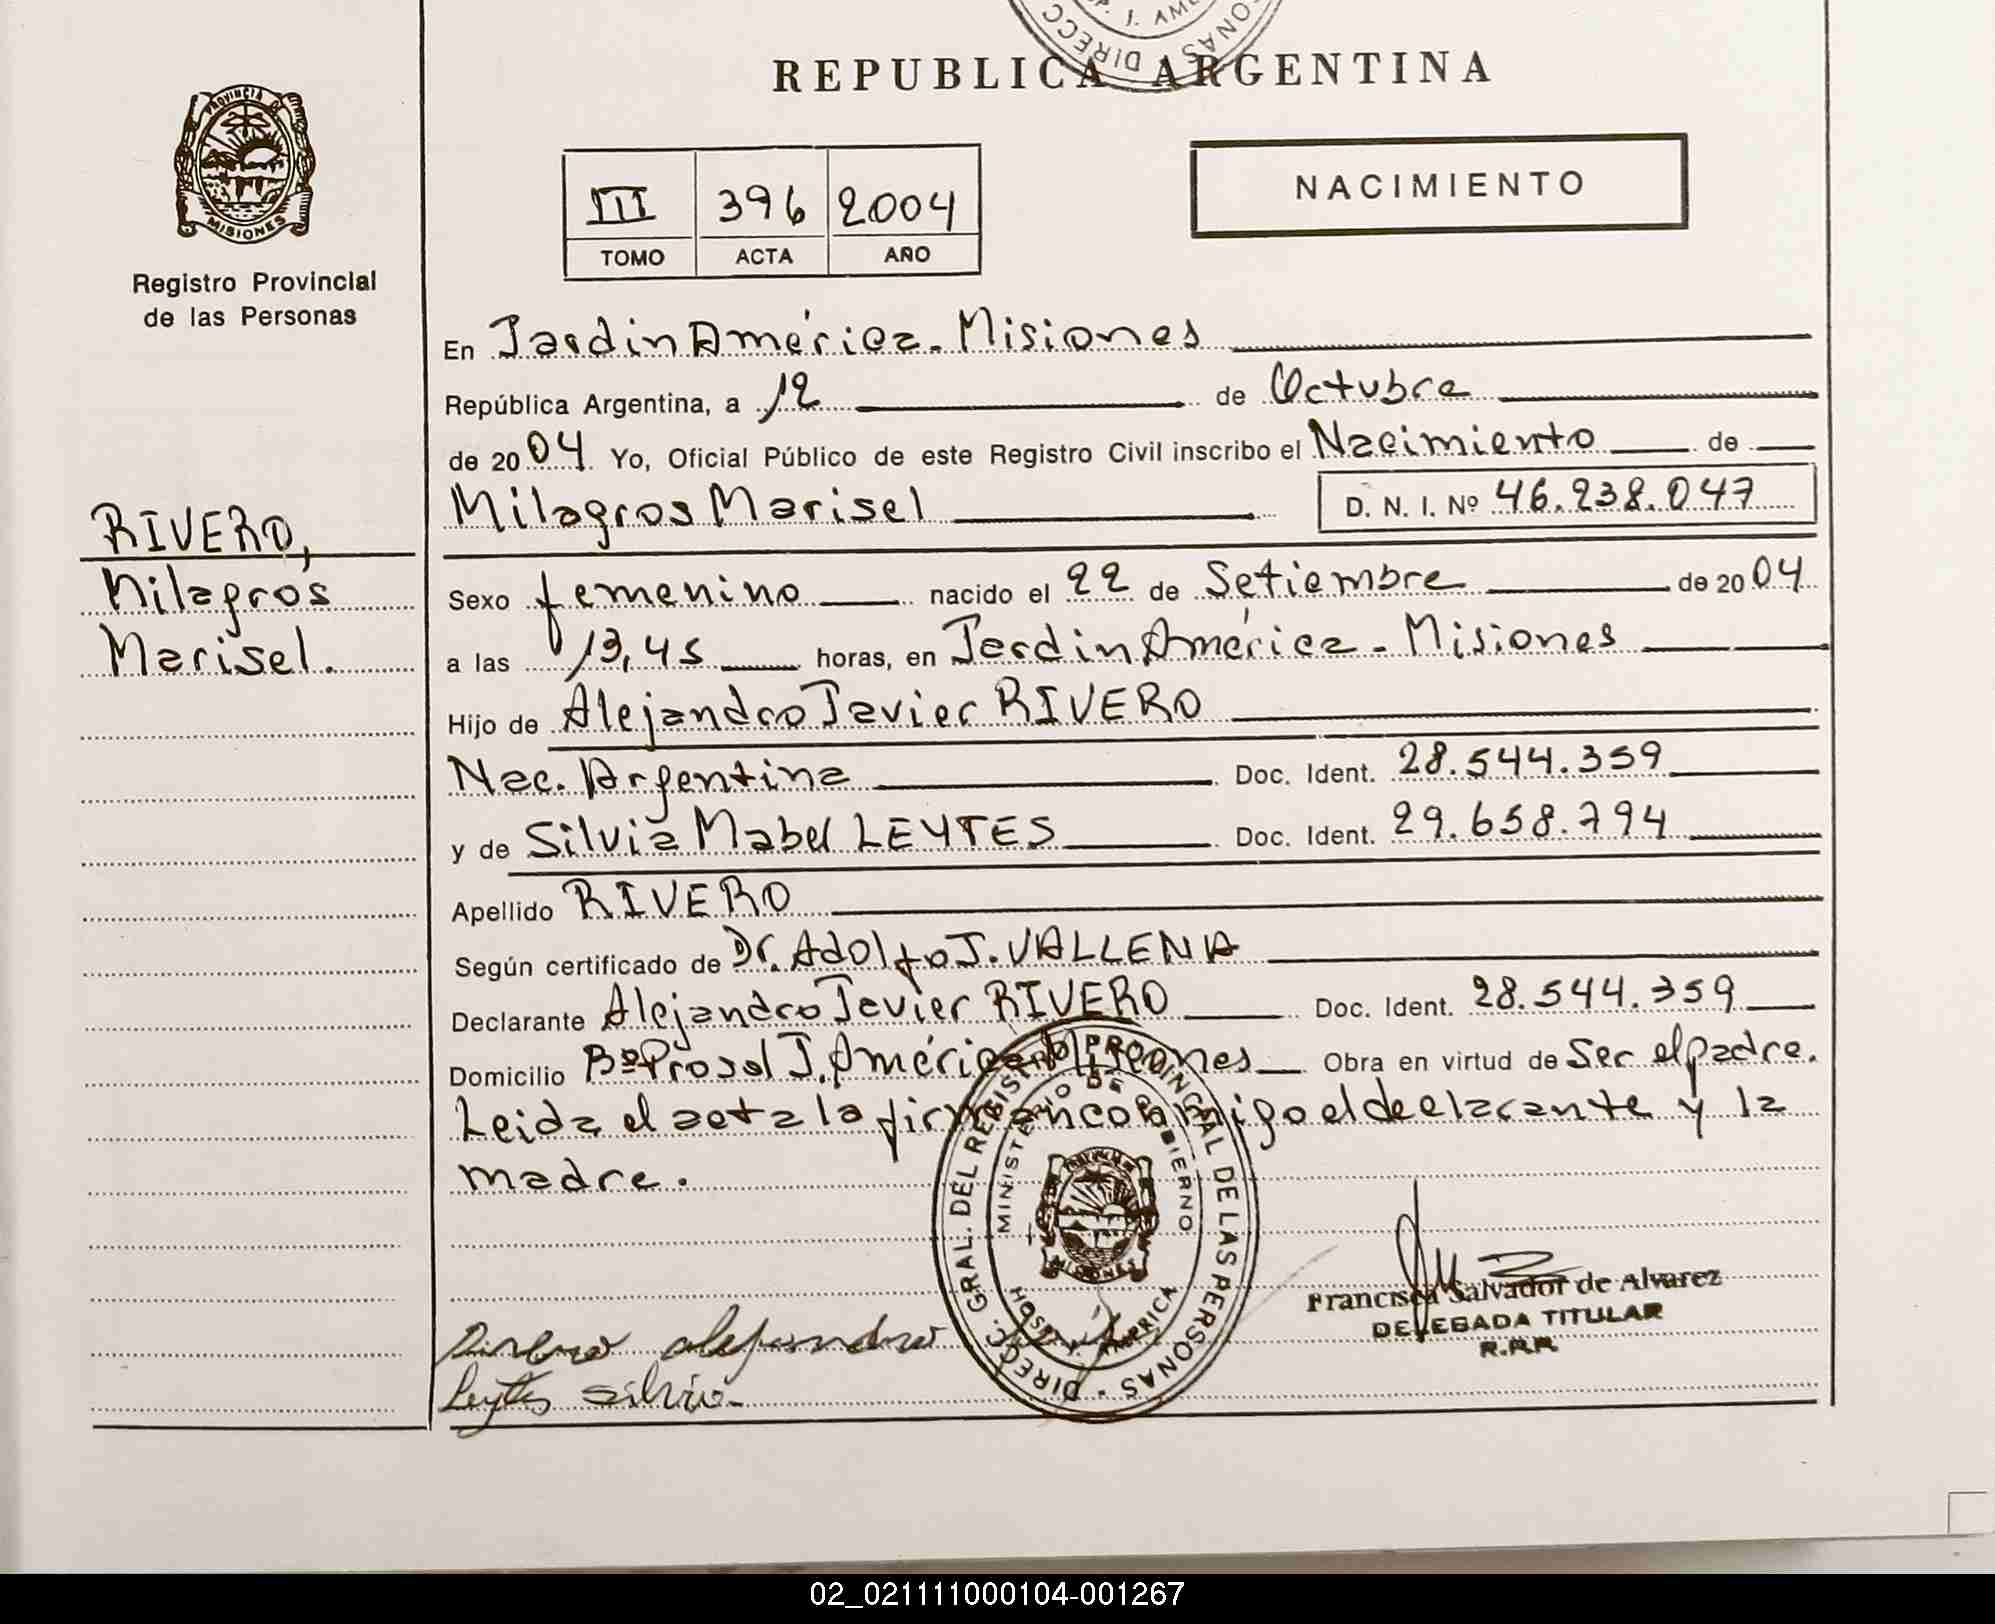 DIRECC
ONAS
P. J. AME
REPUBLICA ARGENTINA
PROVINCIA DE
MISIONES
Registro Provincial
de las Personas
III 396 2004
TOMO ACTA AÑO
NACIMIENTO
En Jardin América. Misiones
República Argentina, a 12 de Octubre
de 2004 Yo, Oficial Público de este Registro Civil inscribo el Nacimiento de
Milagros Marisel D. N. I. Nº 46.238.047
RIVERO,
Milagros
Marisel.
Sexo femenino nacido el 22 de Setiembre de 2004
a las 13,45 horas, en Jardin América - Misiones
Hijo de Alejandro Javier RIVERO
Nac. Argentina Doc. Ident. 28.544.359
y de Silvia Mabel LEYTES Doc. Ident. 29.658.794
Apellido RIVERO
Según certificado de Dr. Adolfo J. VALLENA
Declarante Alejandro Javier RIVERO Doc. Ident. 28.544.359
Domicilio Bº Prosol J. América Misiones Obra en virtud de Ser el padre.
Leida el acta la firman conmigo el declarante y la
madre.
DIRECC. GRAL. DEL REGISTRO PROVINCIAL DE LAS PERSONAS
MINISTERIO DE GOBIERNO
MISIONES
AMERICA
Francisca Salvador de Alvarez
DELEGADA TITULAR
R.P.P.
Rivero alejandro
Leytes silvia
02_021111000104-001267